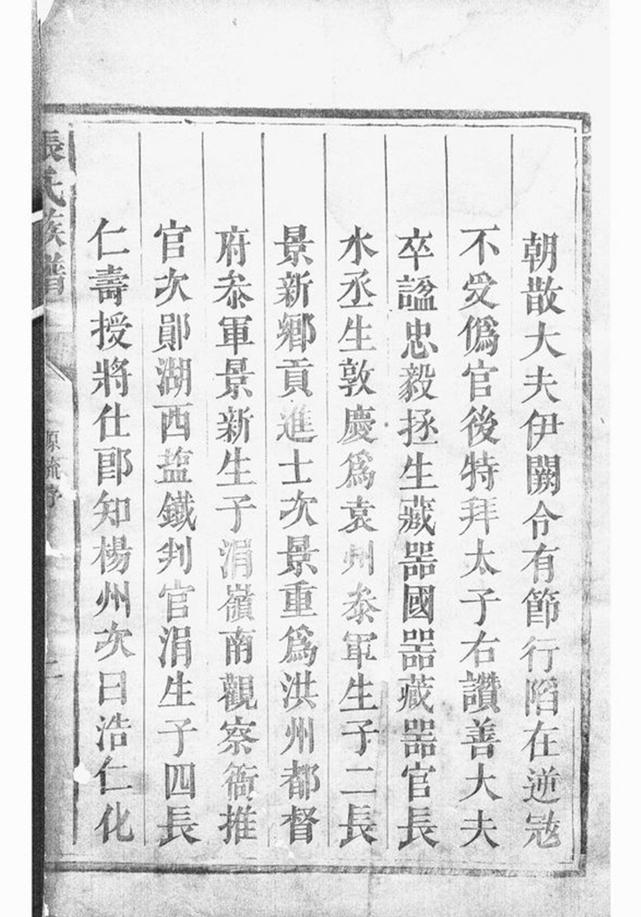 朝散大夫伊闕令有節行陷在逆㓂
不受僞官後特拜太子右讚善大夫
卒諡忠毅拯生藏器國器藏器官長
水丞生敦慶爲袁州叅軍生子二長
景新鄉貢進士次景重爲洪州都督
府叅軍景新生子涓嶺南觀察衙推
官次鄖湖西盐鐵判官涓生子四長
仁壽授將仕郎知楊州次曰浩仁化
張氏族譜
源流序